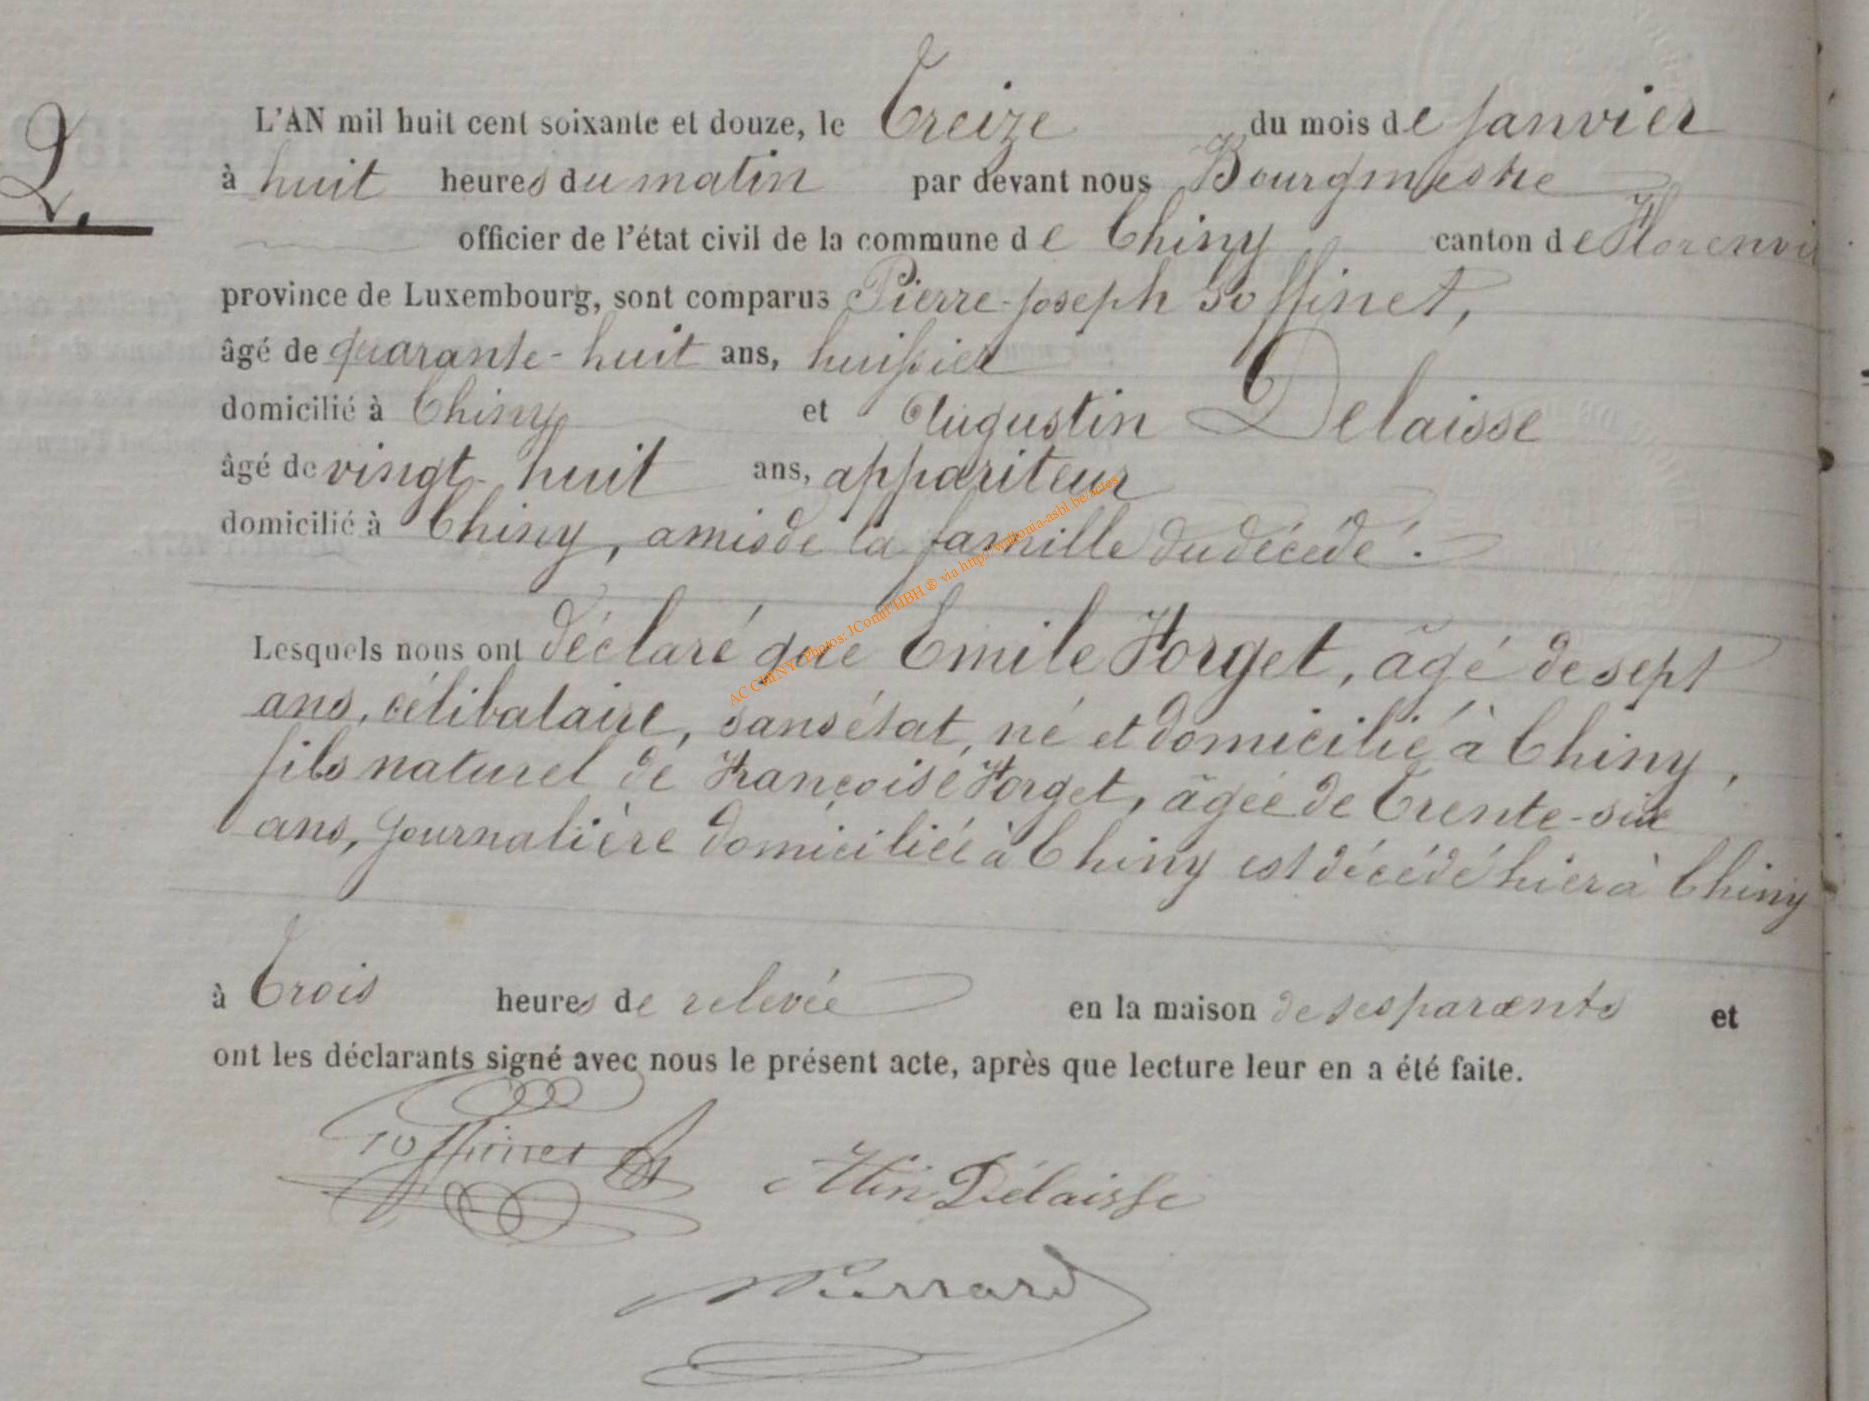 2.
L'AN mil huit cent soixante et douze, le Treize du mois de janvier
à huit heures du matin par devant nous Bourgmestre
officier de l'état civil de la commune de Chiny canton de Florenvil
province de Luxembourg, sont comparus Pierre-Joseph Goffinet,
âgé de quarante-huit ans, huissier
domicilié à Chiny et Augustin Delaisse
âgé de vingt-huit ans, appariteur
domicilié à Chiny, amis de la famille du décédé.
Lesquels nous ont déclaré que Emile Forget, âgé de sept
ans, célibataire, sans état, né et domicilié à Chiny,
fils naturel de Françoise Forget, âgée de Trente-six
ans, journalière domiciliée à Chiny est décédé hier à Chiny
à Trois heures de relevée en la maison de ses parents et
ont les déclarants signé avec nous le présent acte, après que lecture leur en a été faite.
Goffinet Atin Delaisse
AC CHINY - Photos: JComil HBH® via http://wallonia-asbl.be/actes